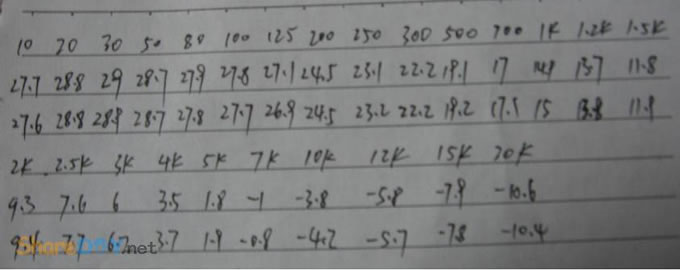 10 20 30 50 80 100 125 200 250 300 500 700 1K 1.2K 1.5K
27.7 28.8 29 28.7 27.9 27.8 27.1 24.5 23.1 22.2 19.1 17 13.7 11.8
27.6 28.8 28.9 28.7 27.8 27.7 26.9 24.5 23.2 22.2 19.2 17.1 15 13.8 11.9
2K 2.5K 3K 4K 5K 7K 10K 12K 15K 20K
9.3 7.6 6 3.5 1.8 -1 -3.8 -5.8 -7.9 -10.6
7.7 3.7 1.9 -0.9 -4.2 -5.7 -7.8 -10.4
.net